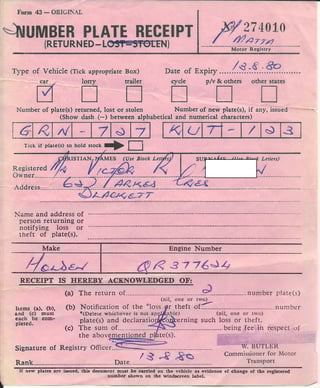 Form 43 – ORIGINAL
NUMBER PLATE RECEIPT
(RETURNED–LOST–STOLEN)
274010
MATTA
Motor Registry
Type of Vehicle (Tick appropriate Box)
Date of Expiry 13.8.80
car lorry trailer cycle p/v & others other states
Number of plate(s) returned, lost or stolen
Number of new plate(s), if any, issued
(Show dash (–) between alphabetical and numerical characters)
GRN-727 KUT-123
Tick if plate(s) to hold stock
CHRISTIAN NAMES (Use Block Letters)
SURNAME (Use Block Letters)
Registered Owner
MR VICTOR R
Address 62 PARKES CRES
BLACKETT
Name and address of
person returning or
notifying loss or
theft of plate(s).
Make Engine Number
HOLDEN QR377624
RECEIPT IS HEREBY ACKNOWLEDGED OF:
(a) The return of 2 number plate(s)
(nil, one or two)
Items (a), (b), and (c) must each be completed.
(b) Notification of the *loss or theft of number
(*Delete whichever is not applicable) (nil, one or two)
plate(s) and declaration concerning such loss or theft.
(c) The sum of being fee in respect of
the abovementioned plate(s).
Signature of Registry Officer
W. BUTLER
Commissioner for Motor
Transport
Rank Date 13.8.80
If new plates are issued, this document must be carried on the vehicle as evidence of change of the registered
number shown on the windscreen label.